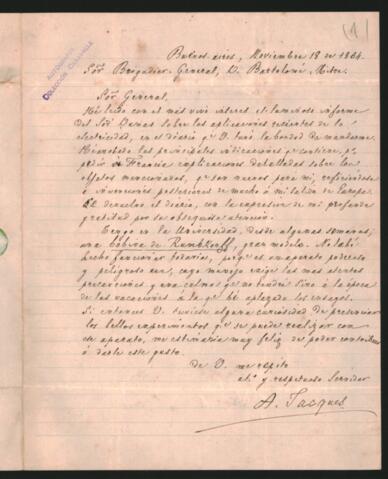 (1)
AUTÓGRAFO
COLECCIÓN
Buenos-aires, Noviembre 18 de 1864.
Sõr Brigadier-General, Dn Bartolomé Mitre.
Sõr General,
Hé leido con el mas vivo interes el luminoso informe
del Sõr Dumas sobre las aplicaciones recientes de la
electricidad, en el diario qe V. tuvo la bondad de mandarme.
las principales indicaciones qe contiene, pa
pedir á Francia esplicaciones detalladas sobre los
objetos mencionados, qe son nuevos para mi, refiriendose
á invenciones posteriores de mucho á mi salida de Europa.
Le devuelvo el diario, con la expresion de mi profunda
gratitud por su obsequiosa atencion.
Tengo en la Universidad, desde algunas semanas,
una bobina de Rumkorff, gran modelo. No la hé
hecho funcionar todavia, porqe es un aparato poderoso
y peligroso aun, cuyo manejo exige las mas atentas
precauciones y una calma qe no tendré sino á la época
de las vacaciones á la qe hé aplazado los ensayos.
Si entonces V. tuviese alguna curiosidad de presenciar
los bellos experimentos qe se puede realizar con
este aparato, me estimaria muy feliz de poder
á darle este gusto.
de V. me repito
ato y respetuoso Servidor
A. Jacques